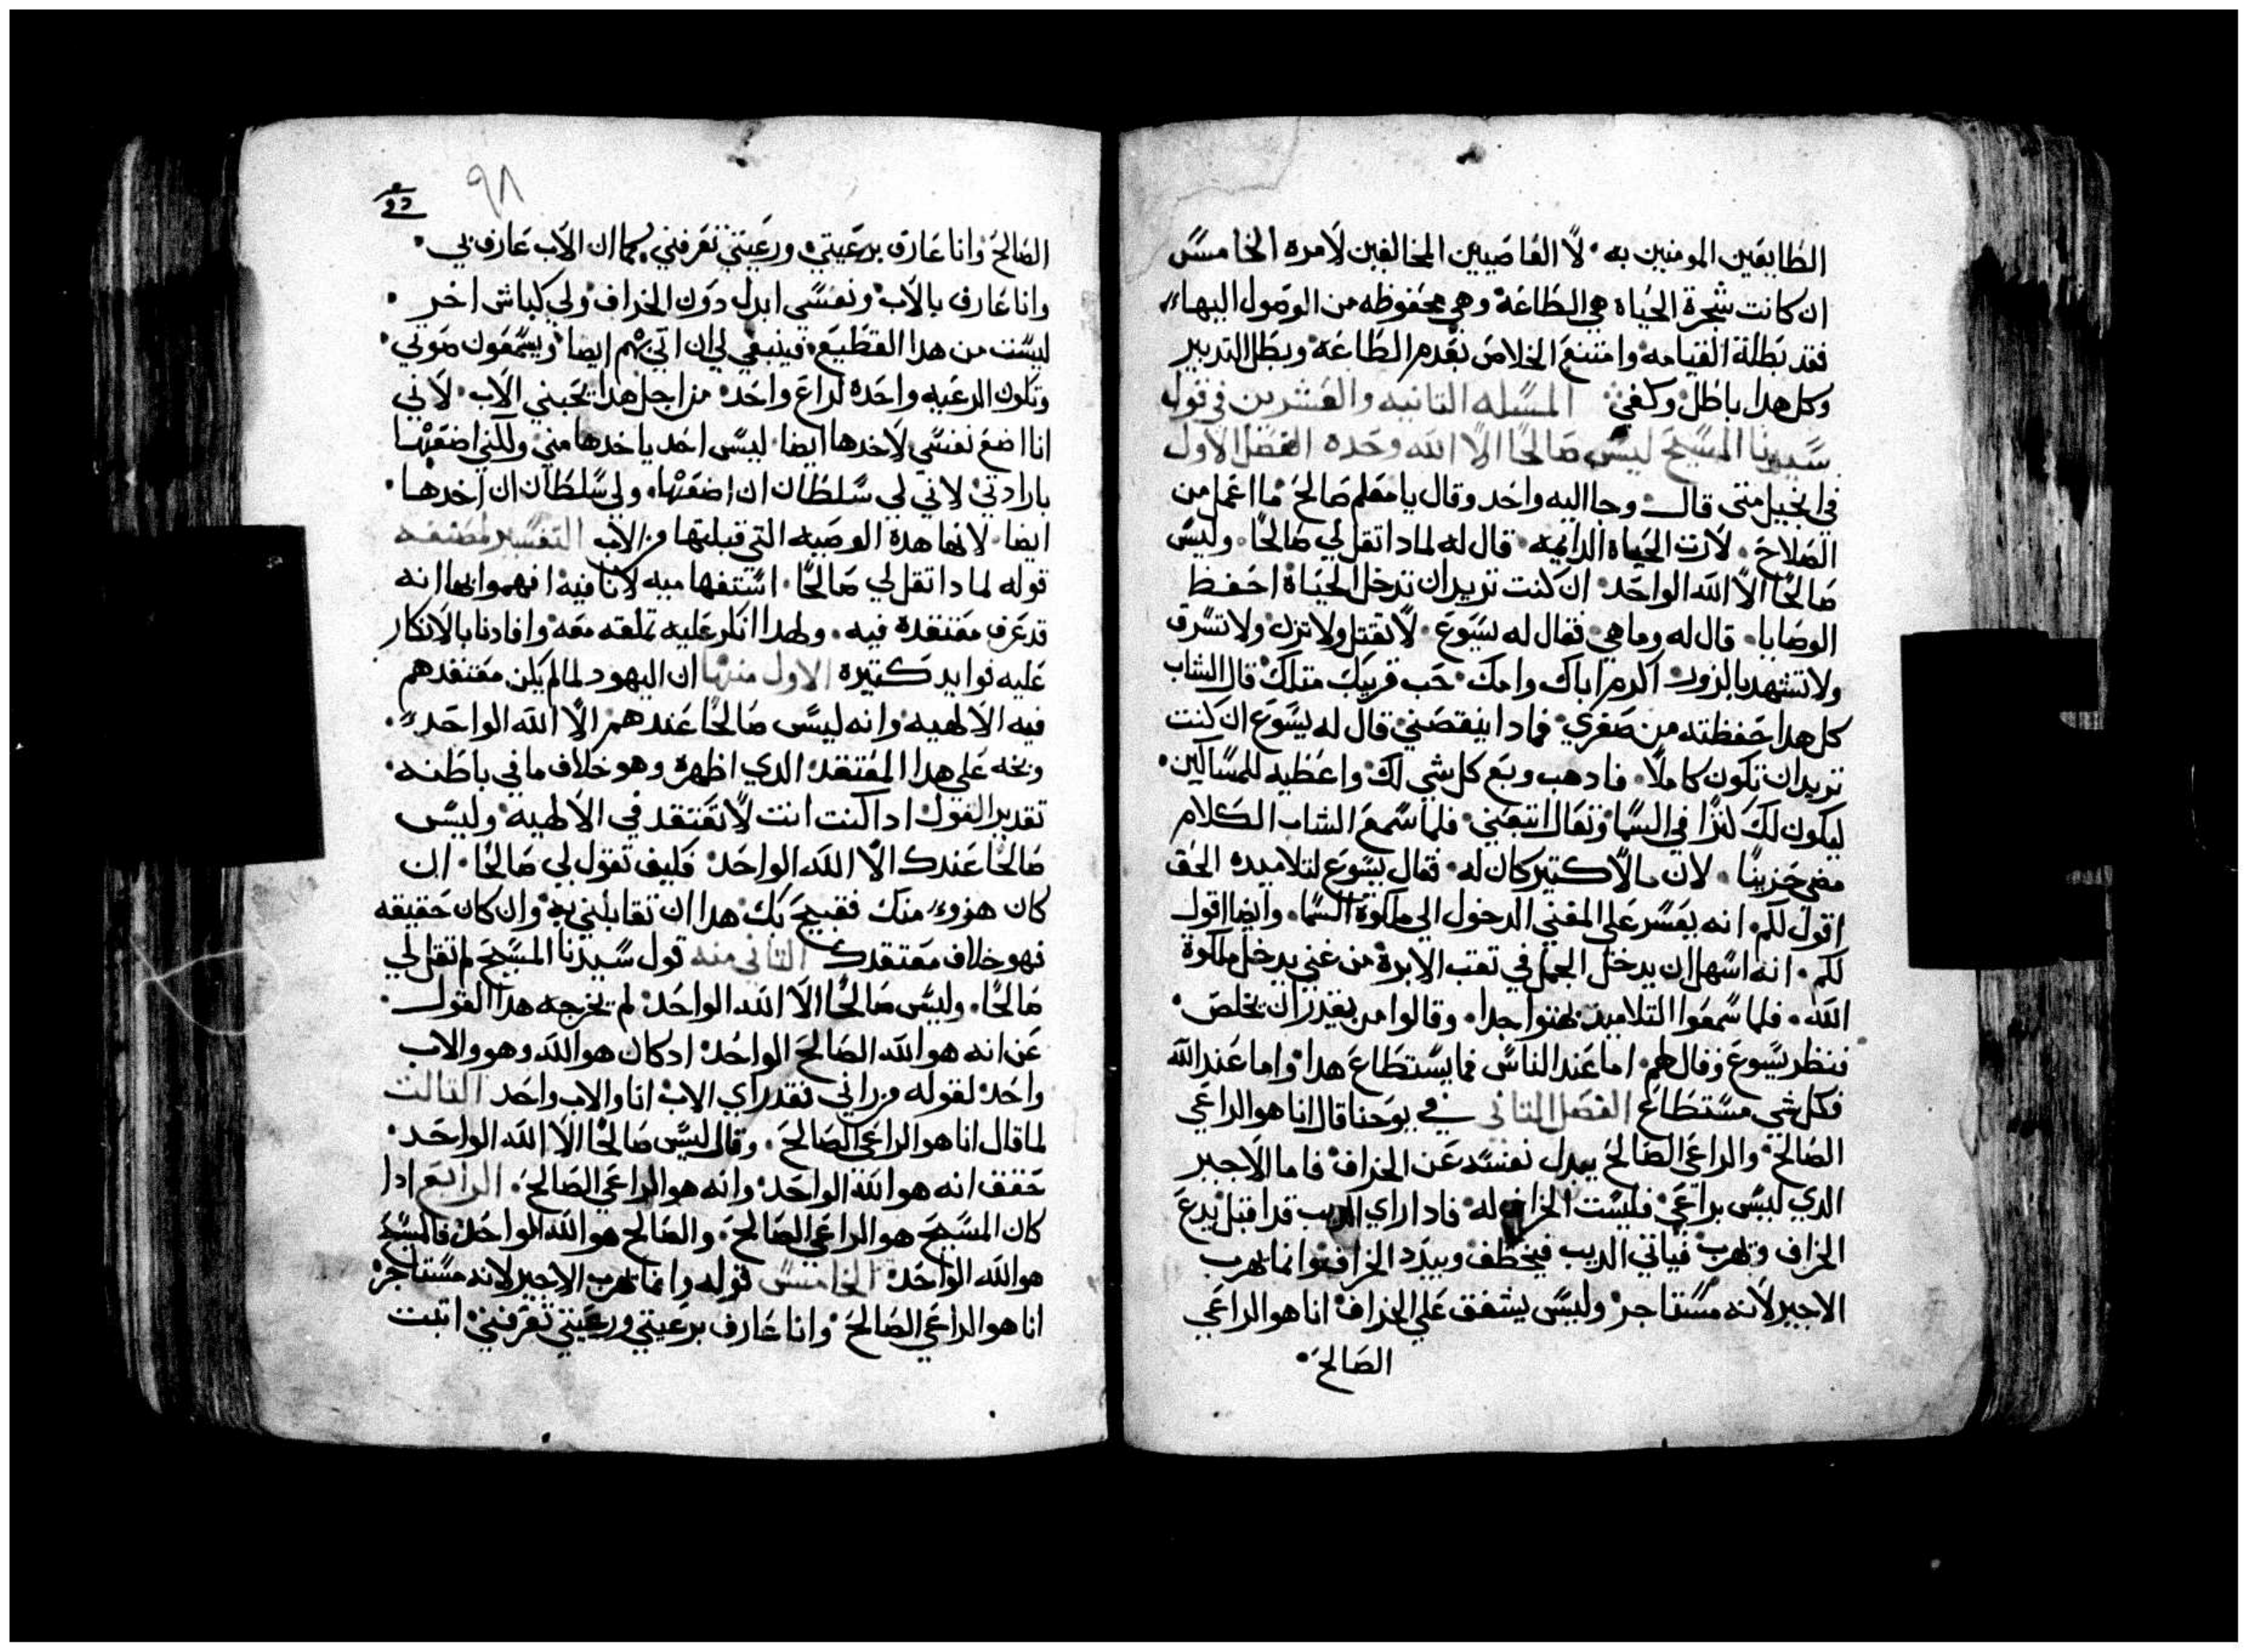 الطايعين المومنين به • لا العاصيين المخالفين لامره الخامس
ان كانت شجرة الحياه هي الطاعة وهي محفوظه من الوصول اليها
فقد بطلة القيامه وامتنع الخلاص بعدم الطاعة وبطل التدبير
وكل هدا باطل وكفي المسله التانيه والعشرين في قول
سيدنا المسيح ليس صالحا الا الله وحده الفصل الاول
في انجيل متي قال وجا اليه واحد وقال يا معلم صالح ما اعمل من
الصلاح • لارت الحياه الدايمه • قال له لمادا تقل لي صالحا • وليس
صالحا الا الله الواحد ان كنت تريد ان تدخل الحياة احفظ
الوصايا • قال له وما هي فقال له يسوع • لا تقتل ولا تزن ولا تسرق
ولا تشهد بالزور اكرم اباك وامك • حب قريبك متلك قال الشاب
كل هدا حفظته من صغري • فمادا ينقصني قال له يسوع ان كنت
تريد ان تكون كاملا • فادهب وبع كل شي لك واعطيه للمساكين •
ليكون لك كنزا في السما وتعال اتبعني • فلما سمع الشاب الكلام
مضي حزينا • لان مالا كتير كان له • فقال يسوع لتلاميده الحق
اقول لكم • انه يعسر علي المغني الدخول الي ملكوة السما • وايضا اقول
لكم • انه اسهل ان يدخل الجمل في تقب الابرة من غني يدخل ملكوة
الله • فلما سمعوا التلاميد بهتوا جدا • وقالوا من يقدر ان يخلص •
فنظر يسوع وقال لهم • اما عند الناس فما يستطاع هدا واما عند الله
فكل شي مستطاع الفصل التاني في يوحنا قال انا هو الراعي
الصالح • والراعي الصالح يبدل نفسه عن الخراف فاما الاجير
الدي ليس براعي فليست الخراف له • فادا راي الديب قد اقبل يدع
الخراف ويهرب فياتي الديب فيخطف ويبدد الخراف وانما يهرب
الاجير لانه مستاجر وليس يشفق علي الخراف انا هو الراعي
الصالح •
٩٨
الصالح وانا عارف برعيتي • ورعيتي تعرفني كما ان الاب عارف بي •
وانا عارف بالاب ونفسي ابدل دون الخراف ولي كباش اخر •
ليست من هدا القطيع • فينبغي لي ان اتي بهم ايضا ويسمعون صوتي •
وتكون الرعيه واحده لراع واحد من اجل هدا يحبني الاب • لاني
انا اضع نفسي لاخدها ايضا ليس احد ياخدها مني • ولكني اضعها
بارادتي لاني لي سلطان ان اضعها • ولي سلطان ان اخدها •
ايضا • لانها هدة الوصيه التي قبلتها من الاب التفسير لمصنفه
قوله لمادا تقل لي صالحا • استفهاميه لانافيه افهموا بها انه
قد عرف معتقده فيه • ولهدا انكر عليه تملقه معه وافادنا بالانكار
عليه فوايد كتيره الاول منها ان اليهود لما لم يكن معتقدهم
فيه الالهيه وانه ليس صالحا عندهم الا الله الواحد •
وبخه علي هدا المعتقد الدي اظهرة وهو خلاف ما في باطنه •
تقدير القول ادا كنت انت لا تعتقد في الالهيه وليس
صالحا عندك الا الله الواحد فكيف تقول لي صالحا • ان
كان هزوء منك فقبيح بك هدا ان تقابلني به وان كان حقيقه
فهو خلاف معتقدك التاني منه قول سيدنا المسيح لم تقل لي
صالحا • وليس صالحا الا الله الواحد لم يخرجه هدا القول •
عن انه هو الله الصالح الواحد ادكان هو الله وهو والاب
واحد لقوله من راني فقد راي الاب انا والاب واحد التالت
لما قال انا هو الراعي الصالح • وقال ليس صالحا الا الله الواحد •
حقق انه هو الله الواحد وانه هو الراعي الصالح • الرابع ادا
كان المسيح هو الراعي الصالح • والصالح هو الله الواحد فالمسيح
هو الله الواحد الخامس قوله وانما يهرب الاجير لانه مستاجر
انا هو الراعي الصالح وانا عارف برعيتي ورعيتي تعرفني اتبت